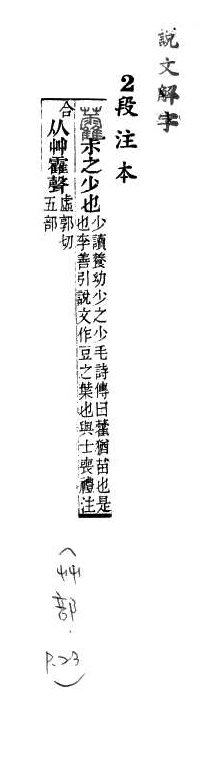 說文解字
2段注本
䕲尗之少也少讀養幼少之少毛詩傳曰藿猶苗也是
也李善引說文作豆之葉也與士喪禮注
合从艸靃聲虛郭切
五部
(艸部.
P.23)